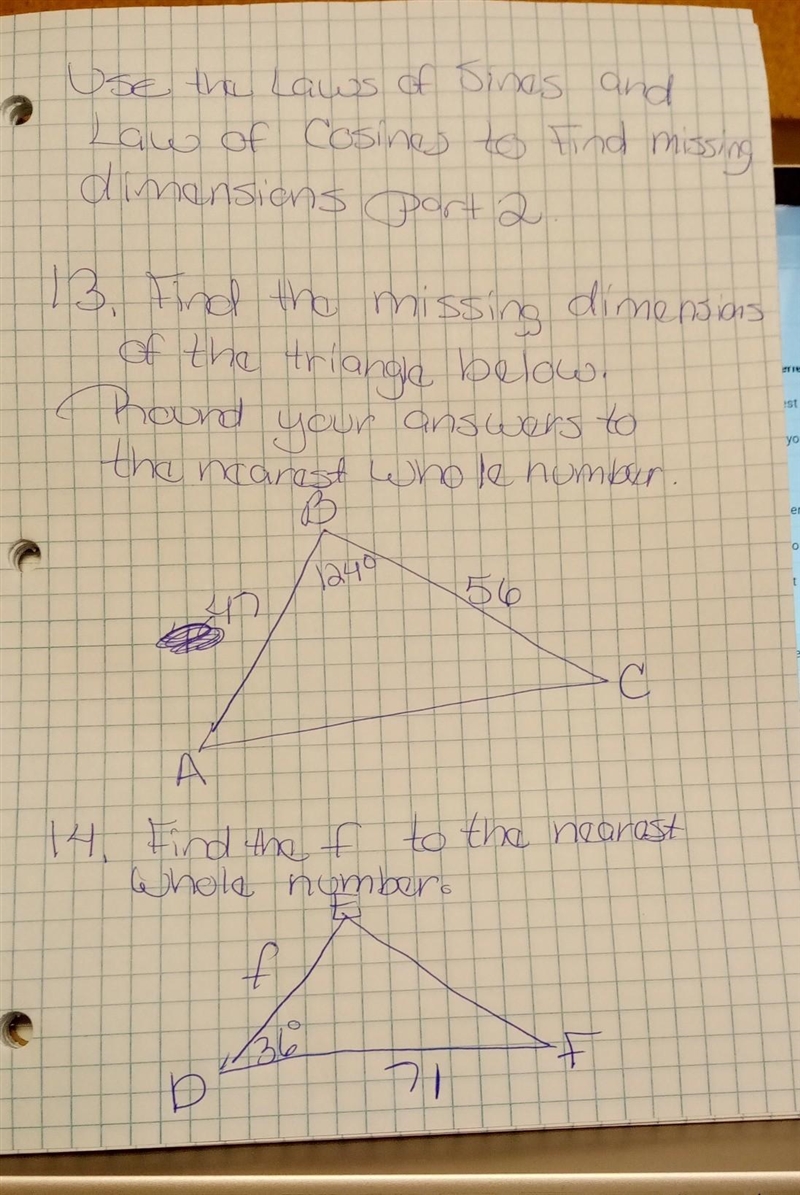 Use the Laws of Sines and
Law of Cosines to Find missing
dimensions Part 2.
13. Find the missing dimensions
of the triangle below.
Round your answers to
the nearest whole number.
B
124°
47
56
C
A
14. Find the f to the nearest
whole number.
E
f
36°
F
D
71